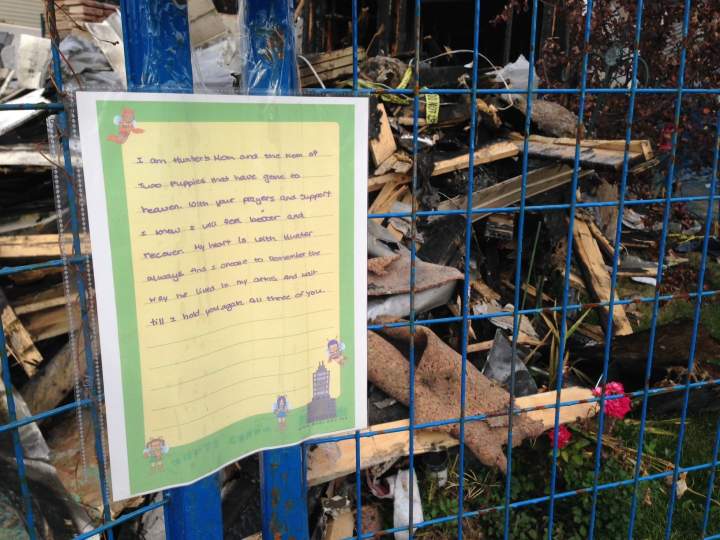 I am Hunter's Mom and the Mom of
two Puppies that have gone to
heaven. With your prayers and support
I know I will feel better and
recover. My heart is with Hunter
always and I choose to remember the
way he lived in my arms and wait
till I hold you again. All three of you.